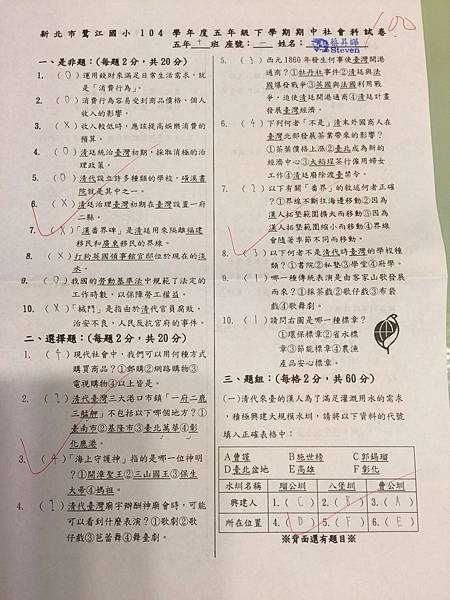 新北市鷺江國小 104 學年度五年級下學期期中社會科試卷
100
五年十班 座號：一 姓名：蔡昇晞
Steven
一、是非題：(每題2分，共20分)
1. (O) 運用錢財來滿足日常生活需求，就
是「消費行為」。
2. (O) 消費內容易受到商品價格、個人
收入的影響。
3. (X) 收入較低時，應該提高娛樂消費的
預算。
4. (O) 清廷統治臺灣初期，採取消極的治
理政策。
5. (O) 清代設立許多種類的學校，磺溪書
院就是其中之一。
6. (X) 清廷治理臺灣初期在臺灣設置一府
二縣。
7. (X)「漢番界碑」是清廷用來隔離福建
移民和廣東移民的界線。
8. (X) 打狗英國領事館官邸位於現在的淡
水。
9. (O) 我國的勞動基準法中規範了法定的
工作時數，以保障勞工權益。
10. (X)「械鬥」是指由於清代官員腐敗、
治安不良，人民反抗官府的事件。
二、選擇題：(每題2分，共20分)
1. (4) 現代社會中，我們可以用何種方式
購買商品？①郵購②網路購物③
電視購物④以上皆是。
2. (2) 清代臺灣三大港口市鎮「一府二鹿
三艋舺」不包括以下哪個地方？①
臺南市②基隆市③臺北萬華④彰
化鹿港。
3. (4)「海上守護神」指的是哪一位神明
？①開漳聖王②三山國王③保生
大帝④媽祖。
4. (2) 清代臺灣廟宇辦酬神廟會時，可能
可以看到什麼表演？①歌劇②歌
仔戲③芭蕾舞④舞臺劇。
5. (3) 西元1860年發生何事使臺灣開港
通商？①牡丹社事件②清廷與法
國爆發戰爭③英國與法國利用戰
爭，迫使清廷開港通商④清廷計畫
發展臺灣經濟。
6. (4) 下列何者「不是」清末外國商人在
臺灣北部發展茶業帶來的影響？
①茶葉價格上漲②臺北成為新的
經濟中心③大稻埕茶行僱用婦女
工作④清廷廢除渡臺禁令。
7. (2) 以下有關「番界」的敘述何者正確
？①界線不斷往海邊移動②因為
漢人拓墾範圍擴大而移動③因為
漢人拓墾範圍縮小而移動④界線
會隨著季節不同而移動。
8. (3) 以下何者不是清代時臺灣的學校種
類？①書院②私塾③學堂④府學。
9. (1) 哪一種傳統表演是由客家山歌發展
而來？①採茶戲②歌仔戲③布袋
戲④歌舞劇。
10. (1) 請問右圖是哪一種標章？
①環保標章②省水標
章③節能標章④農漁
產品安心標章。
三、題組：(每格2分，共60分)
(一) 清代來臺的漢人為了滿足灌溉用水的需求
，積極興建大規模水圳，請將以下資料的代號
填入正確表格中：
A曹謹 B施世榜 C郭錫瑠
D臺北盆地 E高雄 F彰化
水圳名稱 瑠公圳 八堡圳 曹公圳
興建人 1.(C) 2.(B) 3.(A)
所在位置 4.(D) 5.(F) 6.(E)
※背面還有題目※